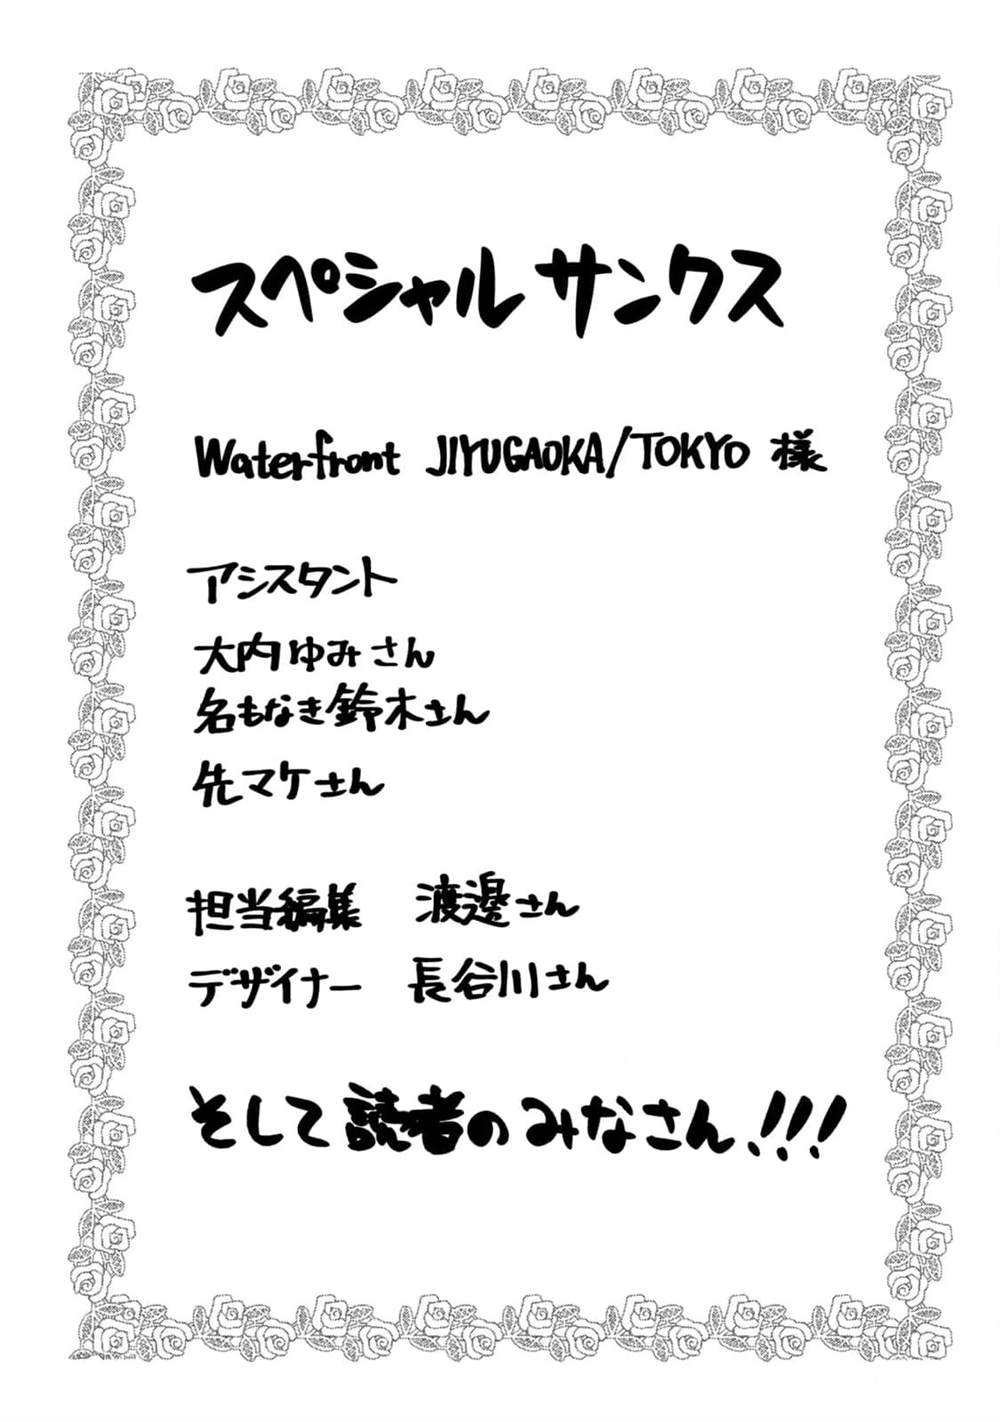 スペシャルサンクス
Waterfront JIYUGAOKA/TOKYO 様
アシスタント
大内ゆみさん
名もなき鈴木さん
先マケさん
担当編集 渡邊さん
デザイナー 長谷川さん
そして読者のみなさん!!!